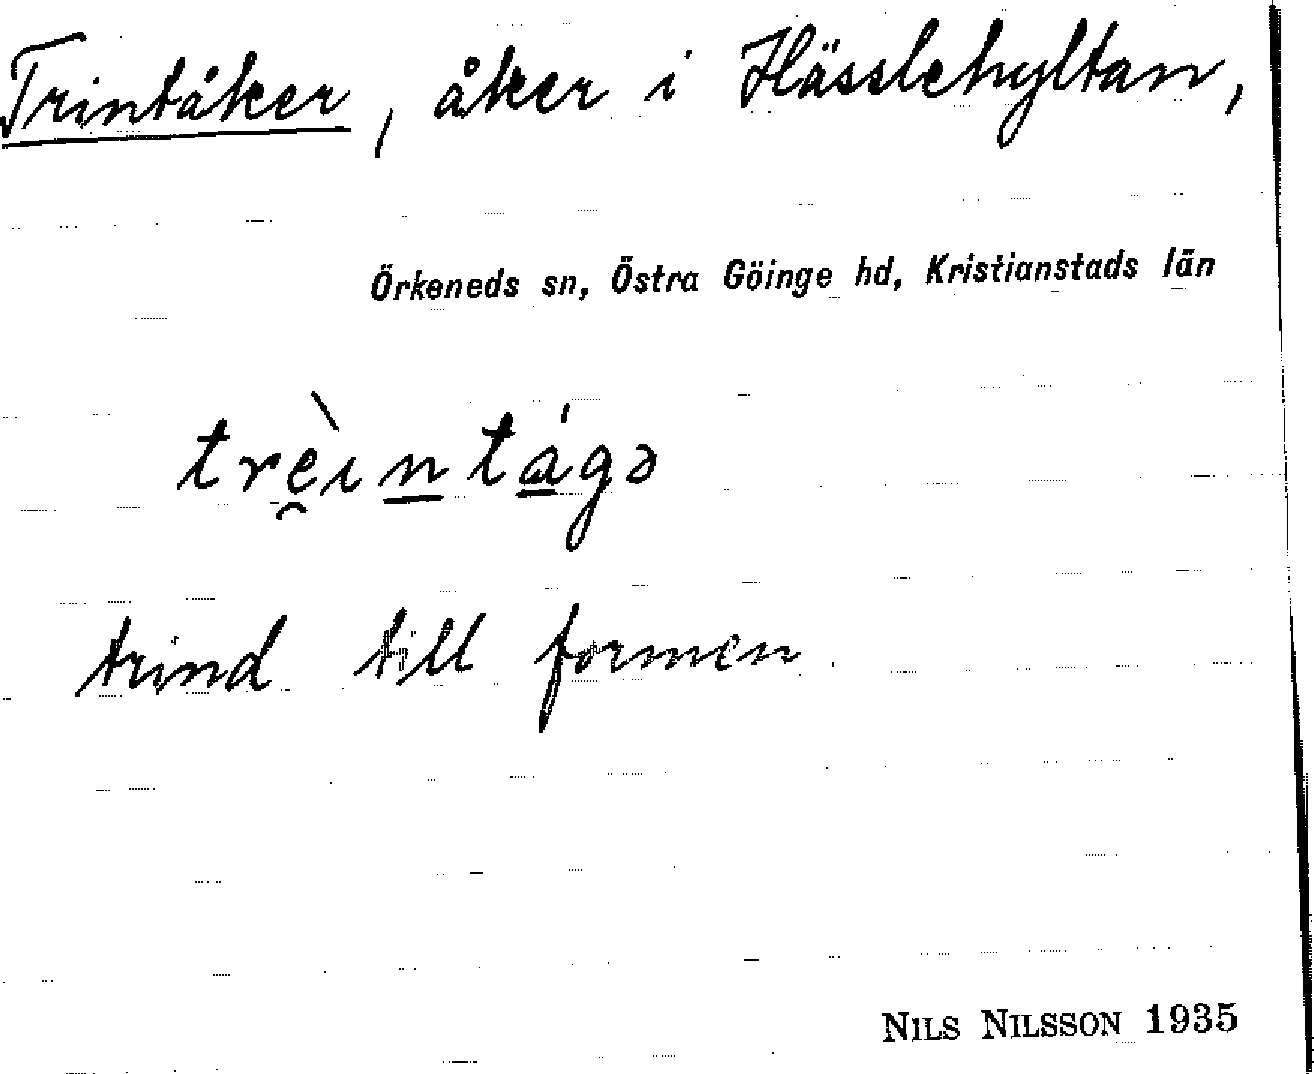 Trintåker, åker i Hässlehyltan,
Örkeneds sn, Östra Göinge hd, Kristianstads län
trè̯ɪn̲tá̲gə
trind till formen
NILS NILSSON 1935